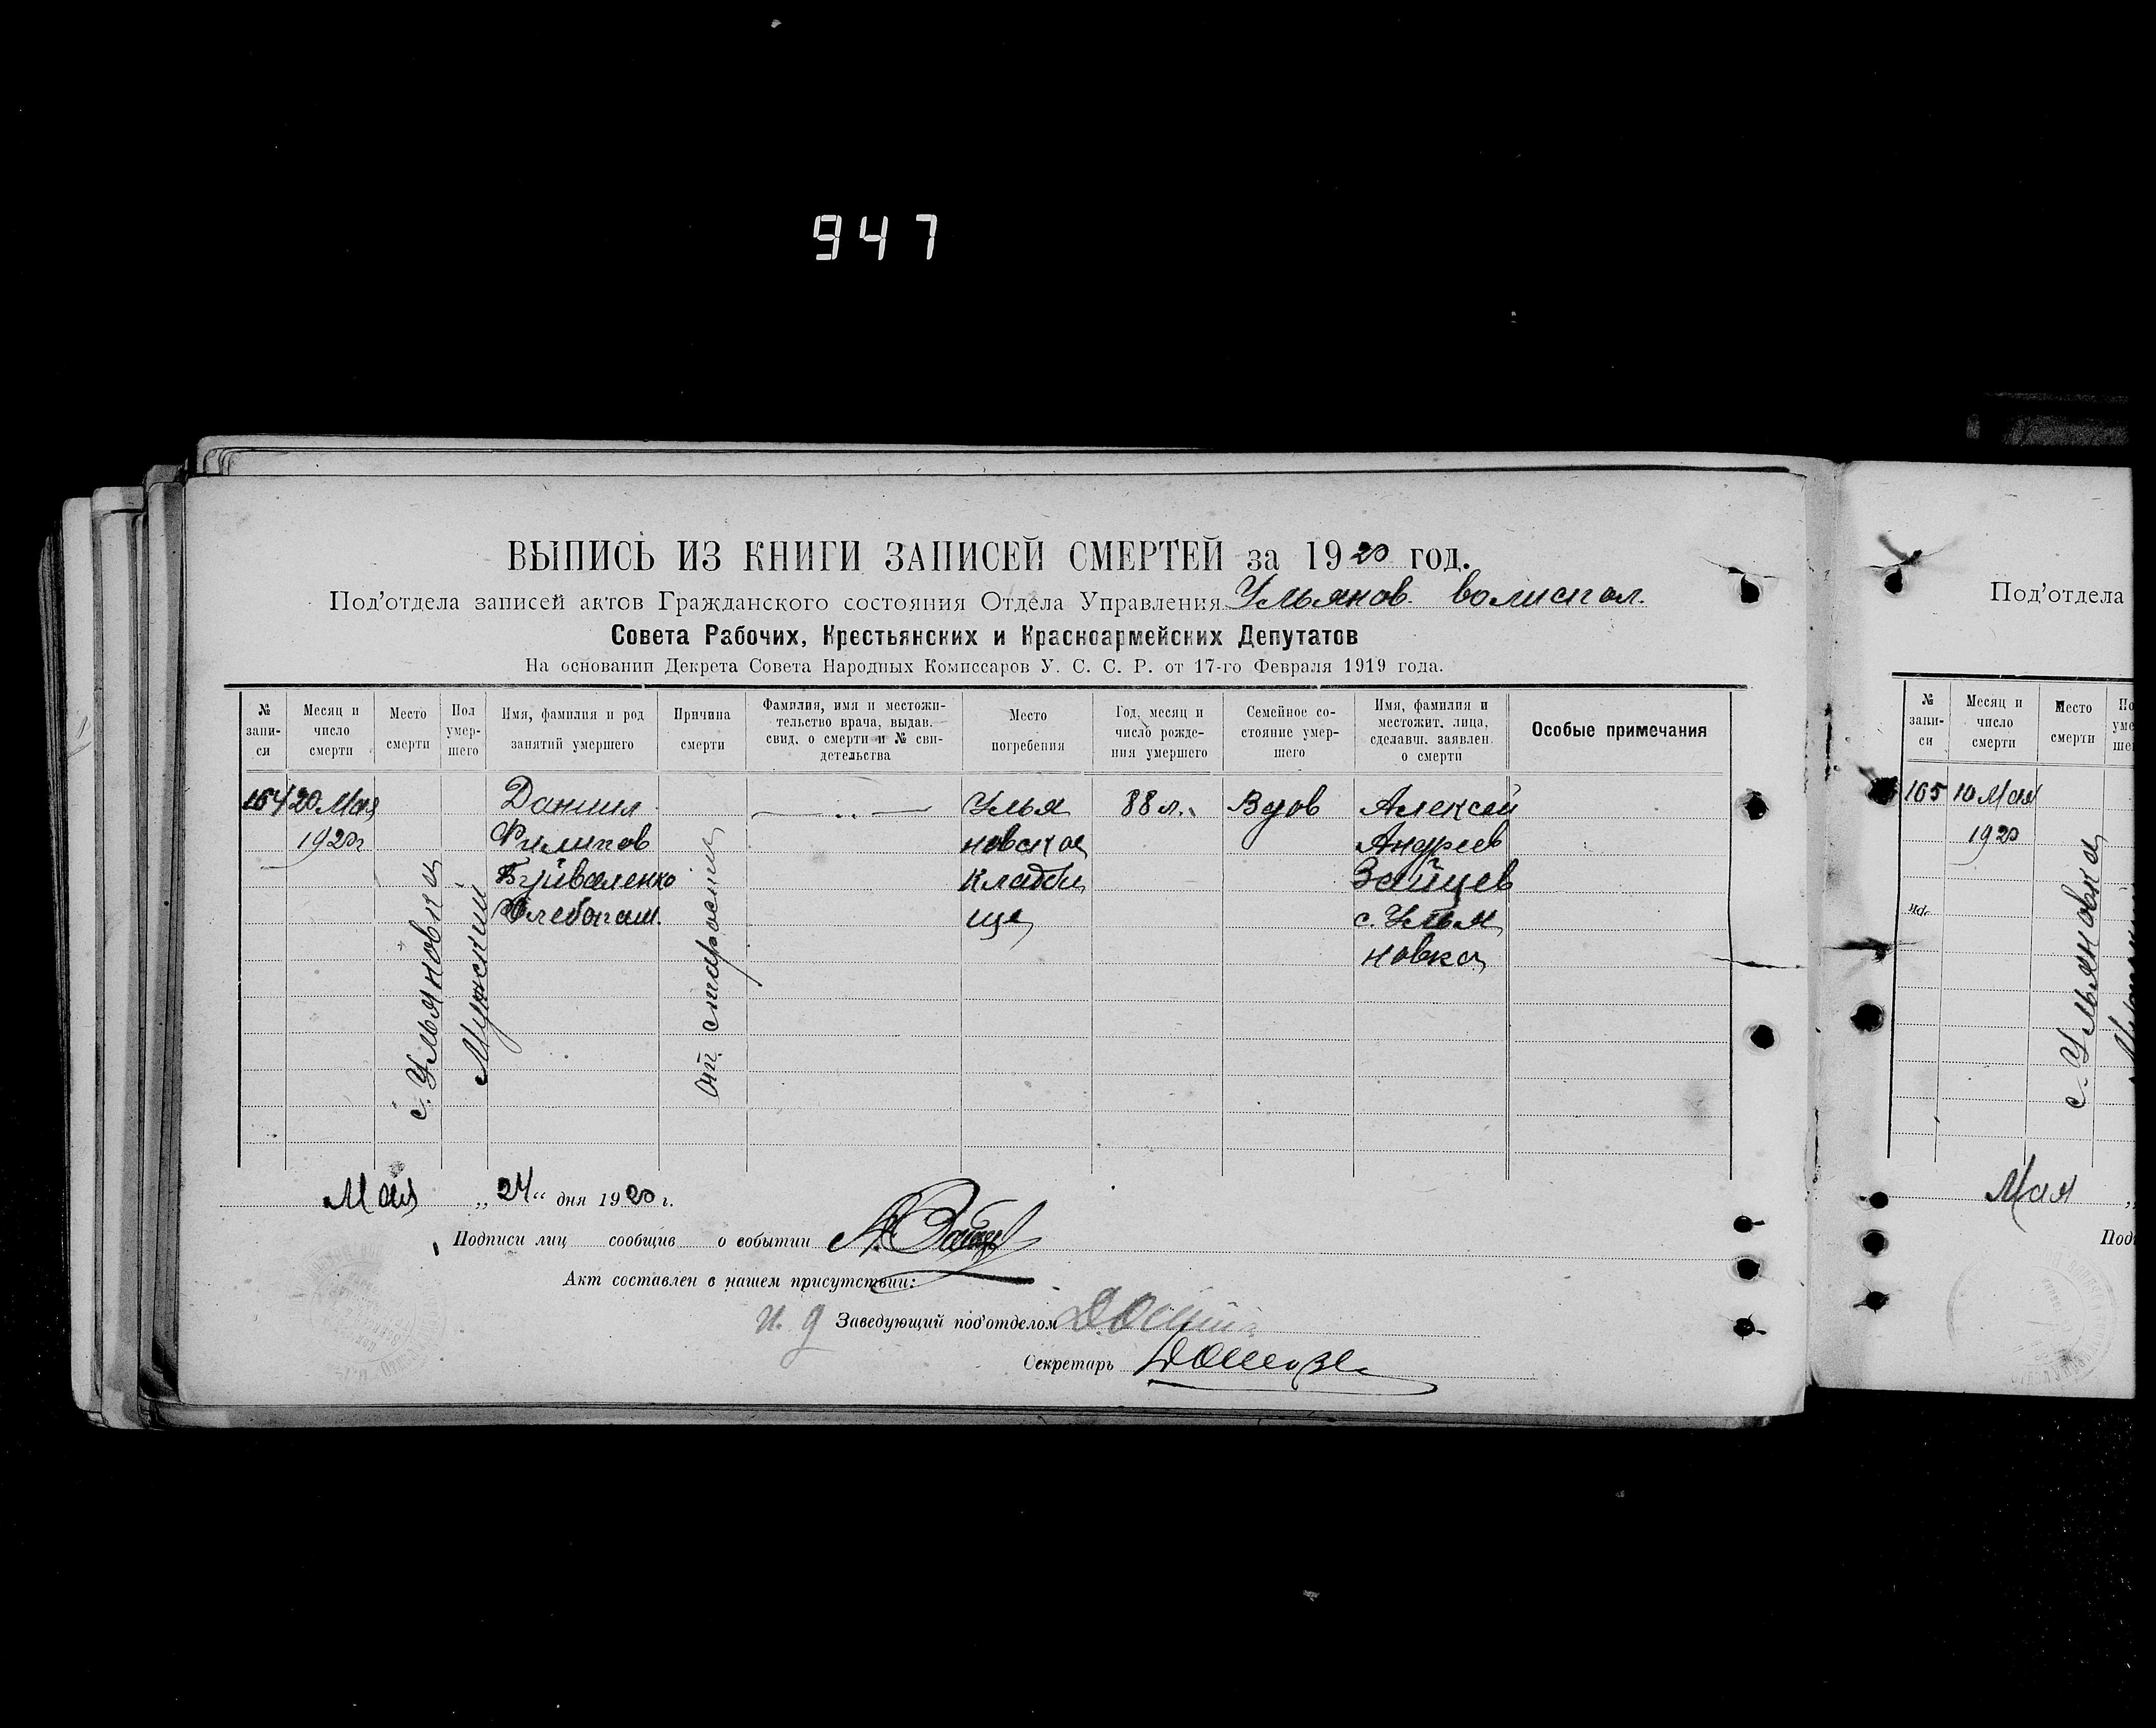 947
ВЫПИСЬ ИЗ КНИГИ ЗАПИСЕЙ СМЕРТЕЙ за 1920 год.
Под'отдела записей актов Гражданского состояния Отдела Управления Ульянов. волиспол.
Совета Рабочих, Крестьянских и Красноармейских Депутатов
На основании Декрета Совета Народных Комиссаров У. С. С. Р. от 17-го Февраля 1919 года.
№ запи- си
Месяц и число смерти
Место смерти
Пол умер- шего
Имя, фамилия и род занятий умершего
Причина смерти
Фамилия, имя и местожи- тельство врача, выдав. свид. о смерти и № сви- детельства
Место погребения
Год, месяц и число рожде- ния умершего
Семейное со- стояние умер- шего
Имя, фамилия и местожит. лица, сделавш. заявлен. о смерти
Особые примечания
164
20 Мая
1920 г
с. Ульяновка
Мужский
Даниил
Филипов
Буйваленко
Хлебопаш.
От старости
Улья
новское
кладби
ще
88 л.
Вдов
Алексей
Андреев
Зайцев
с. Улья
новка
Мая „24“ дня 1920 г.
Подписи лиц сообщив о событии А. Зайцев
Акт составлен в нашем присутствии:
и. д Заведующий под'отделом
Секретарь
Под'отдела
№ запи- си
Месяц и число смерти
Место смерти
165
10 Мая
1920
с. Ульяновка
Мая